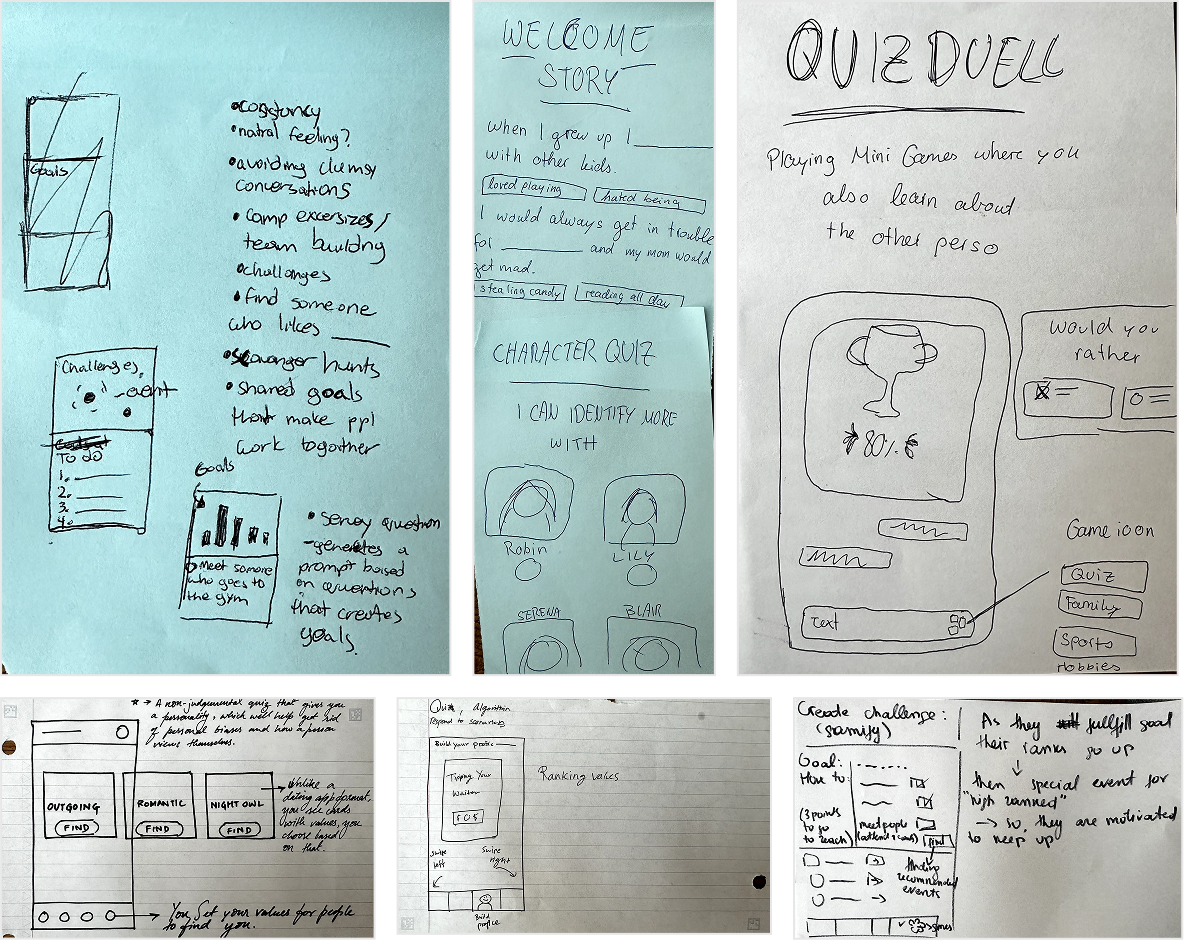 Goals
• consistency
• natral feeling?
• avoiding clumsy
conversations
• camp excersizes /
team building
• challanges
• find someone
who likes ____
• scavanger hunts
• shared goals
that make ppl
work togather
Challenges
-event
To do
1.
2.
3.
4.
Goals
meet somone
who goes to
the gym
question
-generates a
prompt baised
on questions
that creates
goals.
WELCOME
STORY
when I grew up I ______
with other kids.
loved playing
hated being
I would always get in trouble
for ______ and my mom would
get mad.
stealing candy
reading all day
CHARACTER QUIZ
I CAN IDENTIFY MORE
WITH
Robin
LILY
SERENA
BLAIR
QUIZDUELL
Playing Mini Games where you
also learn about
the other perso
80%
Would you
rather
Text
Game icon
Quiz
Family
Sports
Hobbies
* → A non-judgemental quiz that gives you
a personality, which will help get rid
of personal biases and how a person
views themselves.
OUTGOING
FIND
ROMANTIC
FIND
NIGHT OWL
FIND
→ Unlike a
dating app format,
you see cards
with values, you
choose based
on that.
→ You set your values for people
to find you.
Quiz, algorithm
Respond to scenarios
Build your profile
Tipping Your
Waiter
Ranking values
Swipe
left
Swipe
right
Build
profile
Create challenge:
(gamify)
Goal:
How to:
(3 points
to go
to reach)
meet people
find
finding
recommended
events
games
As they fullfill goal
their ranks go up
↓
then special event for
"high ranked"
→ so, they are motivated
to keep up